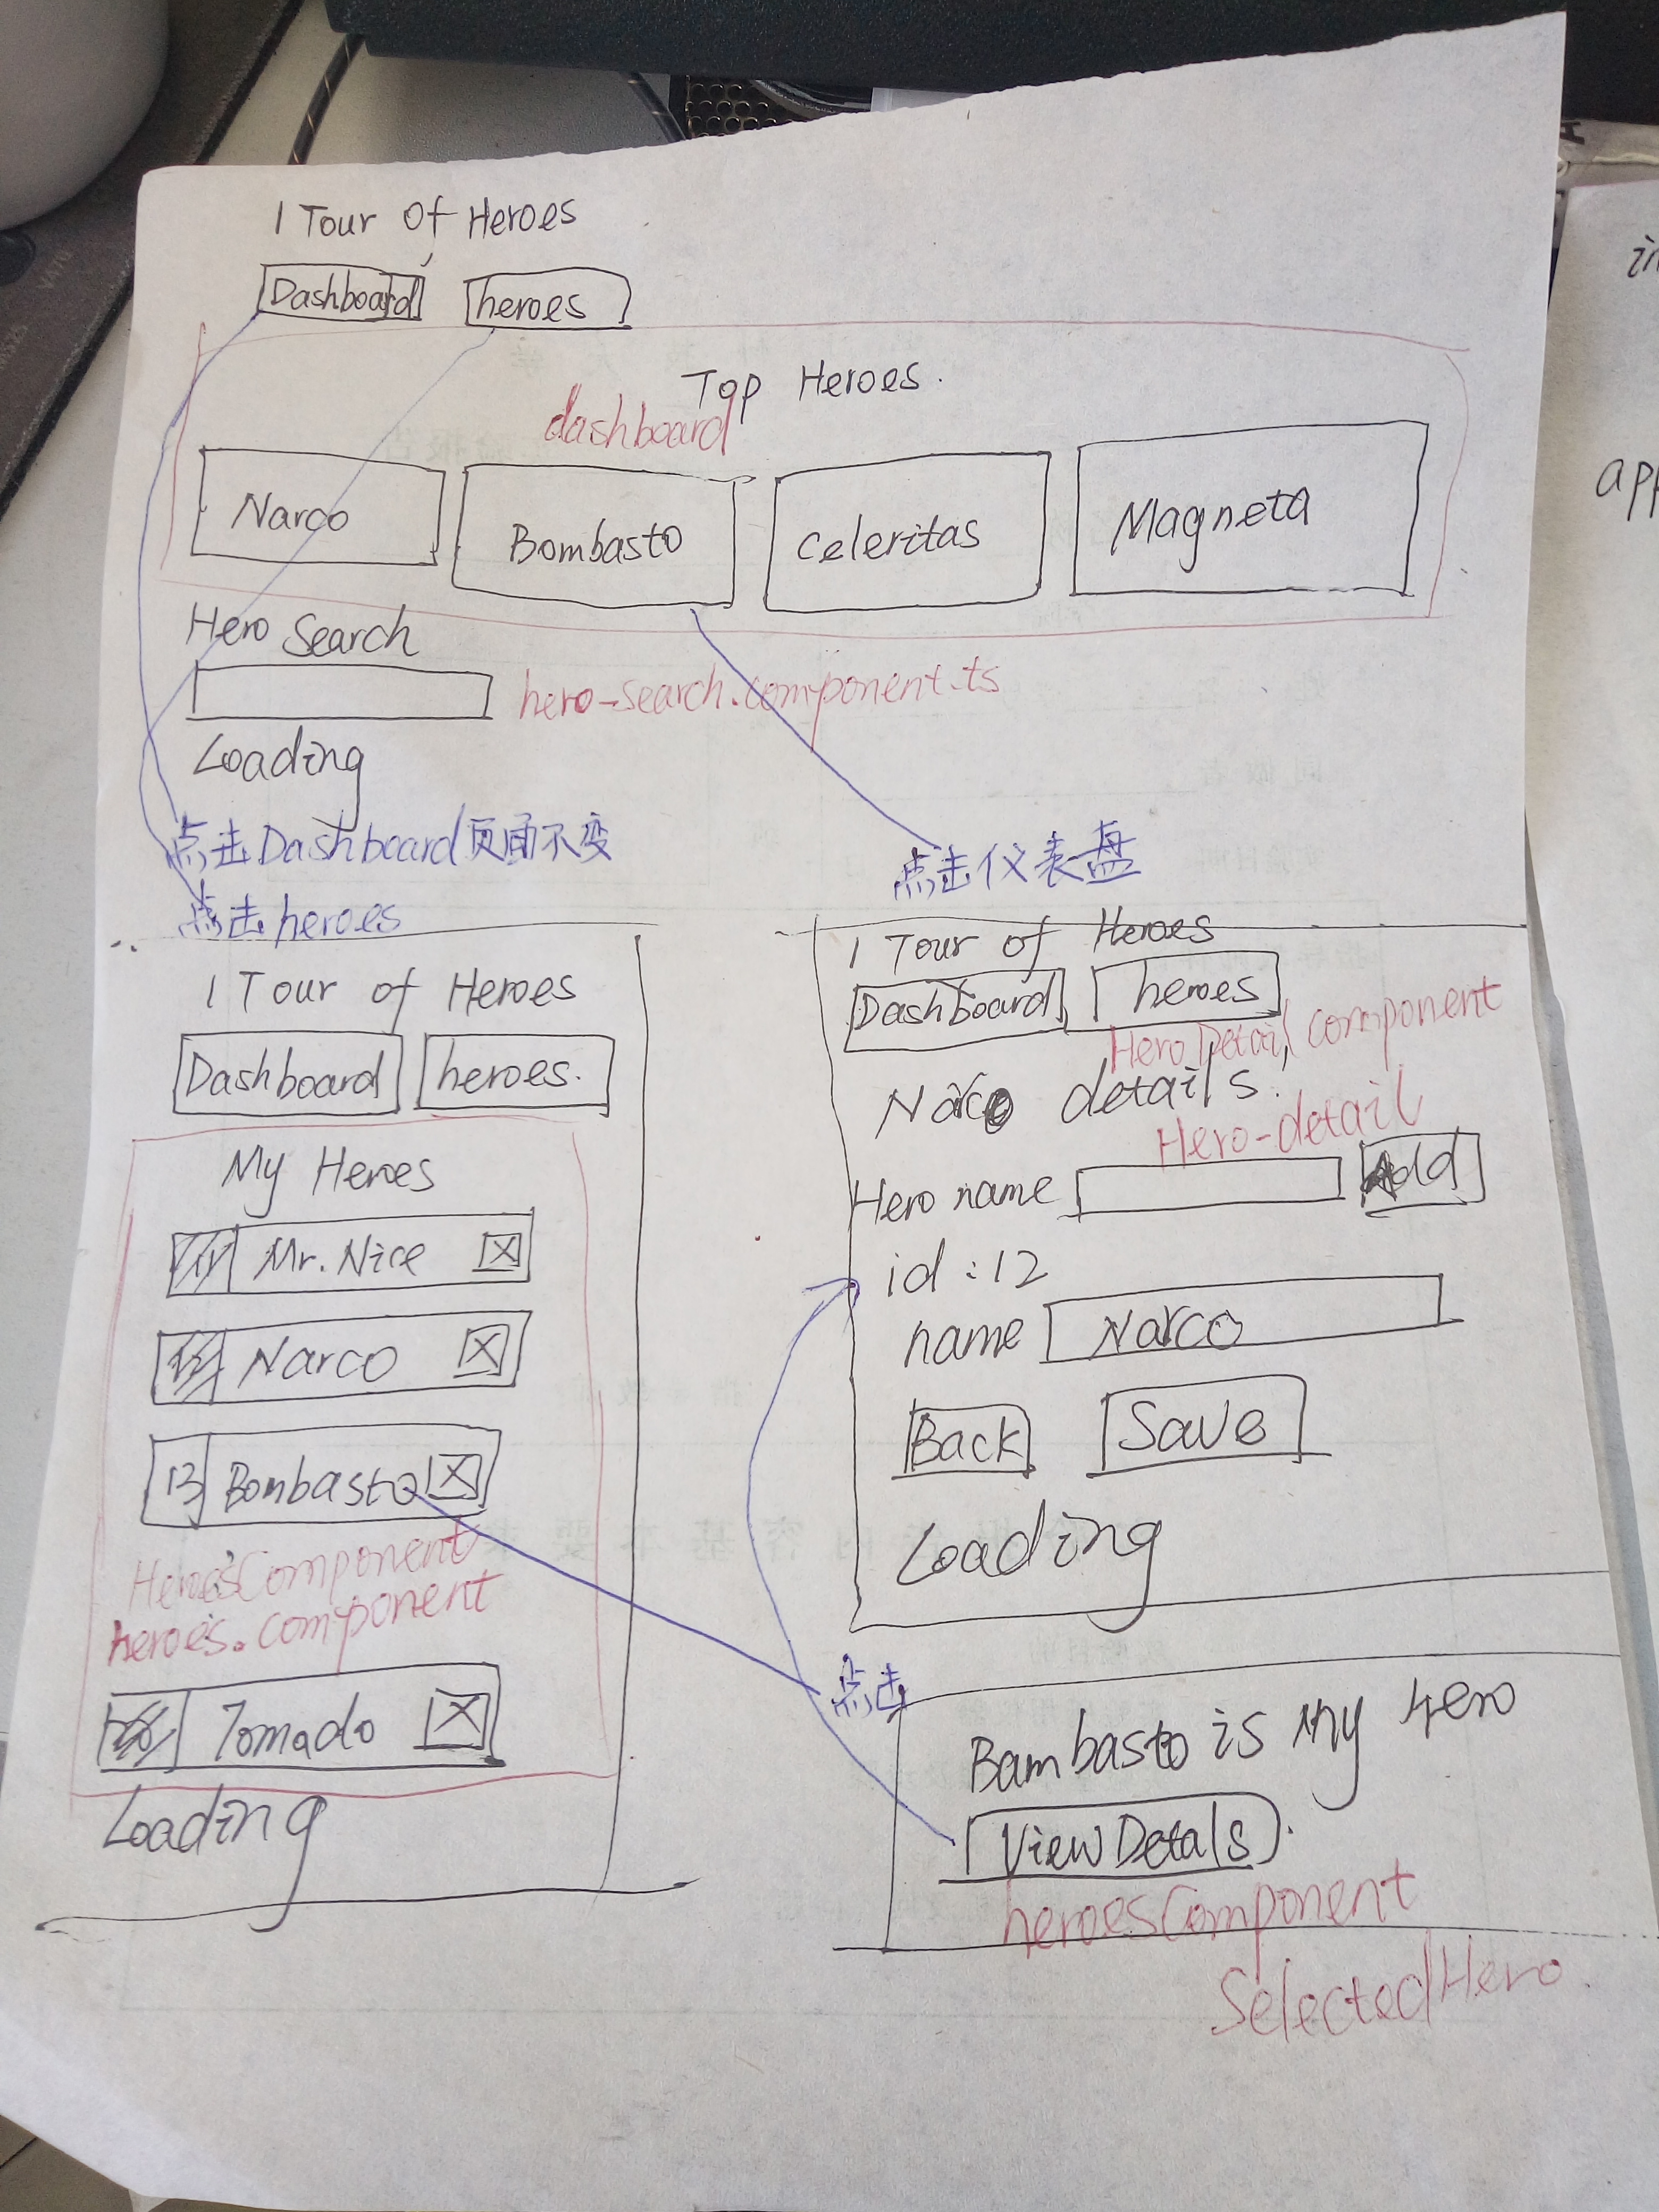 1 Tour Of Heroes
Dashboard heroes
Top Heroes.
dashboard
Narco Bombasto Celeritas Magneta
Hero Search
hero-search.component.ts
Loading
点击Dashboard页面不变
点击仪表盘
点击heroes
1 Tour of Heroes
Dashboard heroes.
My Heroes
Mr.Nice X
Narco X
13 Bombasto X
HeroesComponent
heroes.component
Tomado X
Loading
1 Tour of Heroes
Dashboard heroes
HeroDetail component
Narco details.
Hero-detail
Hero name Add
id:12
name Narco
Back Save
Loading
点击
Bambasto is My Hero
View Detals
heroesComponent
SelectedHero.
in
app